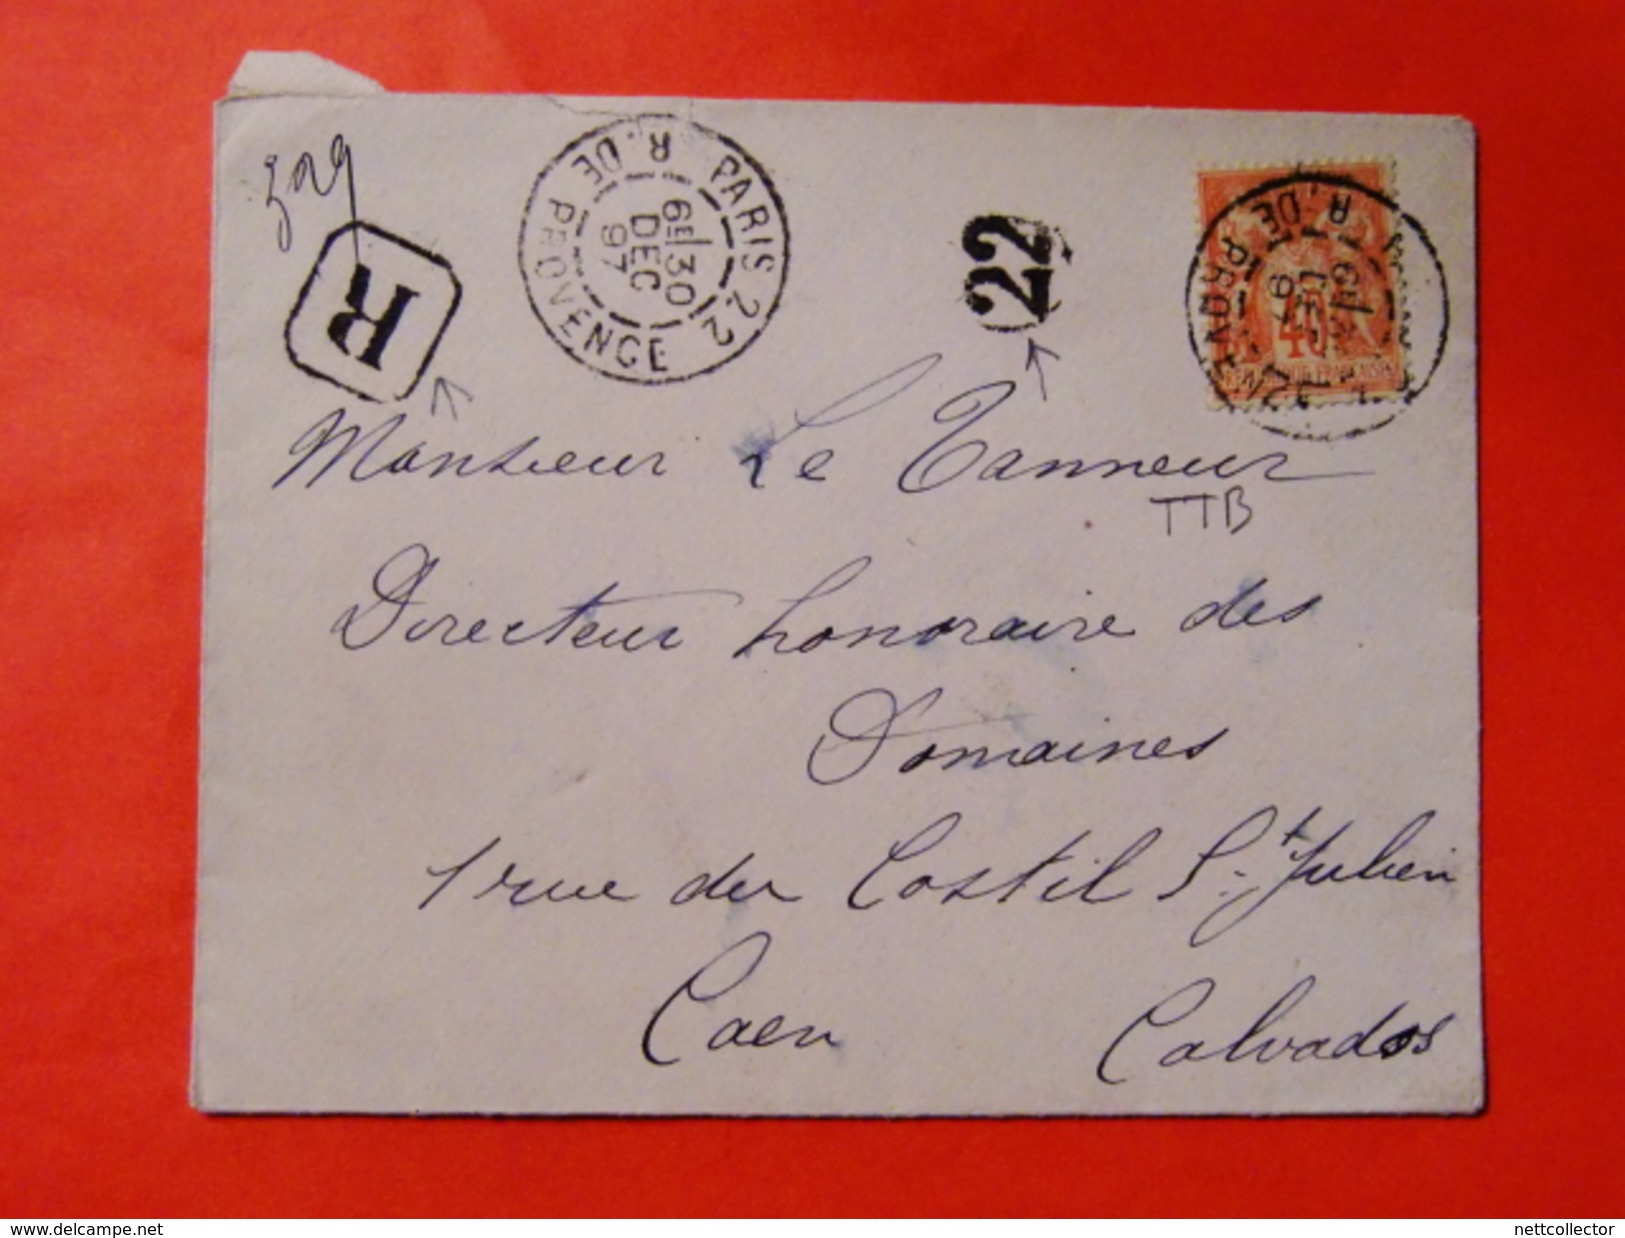 309
R
PARIS 22
R. DE PROVENCE
6E/30
DEC
97
22
R. DE PROVENCE
40
Monsieur Le Tanneur
TTB
Directeur honoraire des
Domaines
1 rue du Costil St Julien
Caen Calvados
www.delcampe.net
nettcollector